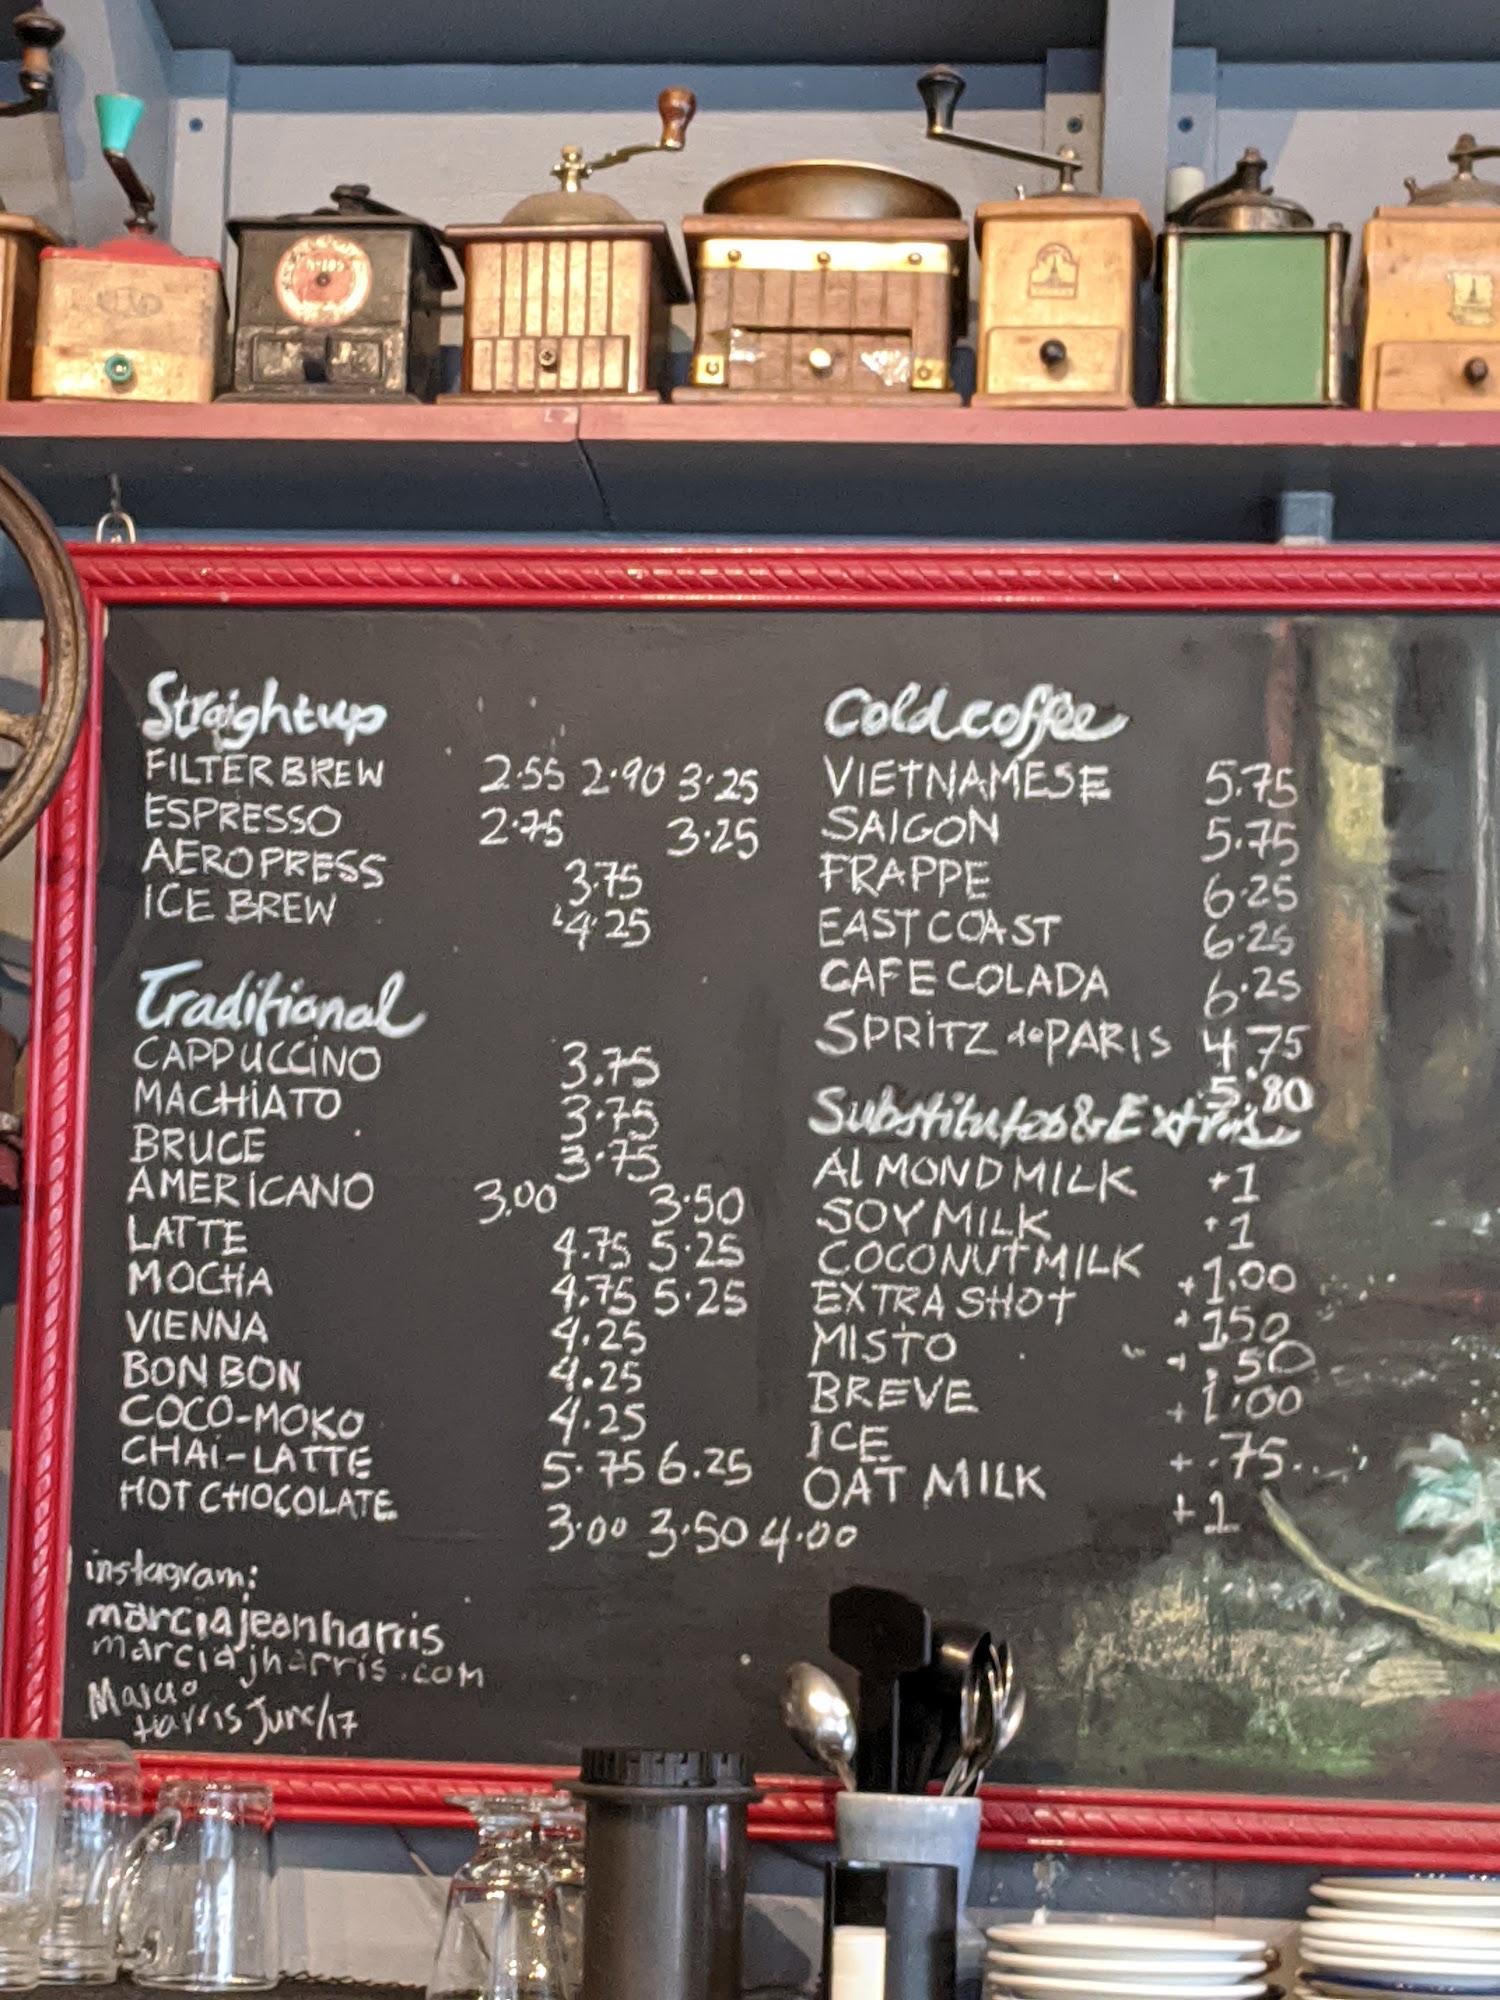 Straight up
FILTER BREW 2.55 2.90 3.25
ESPRESSO 2.75 3.25
AEROPRESS 3.75
ICE BREW 4.25
Traditional
CAPPUCCINO 3.75
MACHIATO 3.75
BRUCE 3.75
AMERICANO 3.00 3.50
LATTE 4.75 5.25
MOCHA 4.75 5.25
VIENNA 4.25
BON BON 4.25
COCO-MOKO 4.25
CHAI-LATTE 5.75 6.25
HOT CHOCOLATE 3.00 3.50 4.00
instagram:
marciajeanharris
marciajharris.com
Harris June/17
Cold coffee
VIETNAMESE 5.75
SAIGON 5.75
FRAPPE 6.25
EAST COAST 6.25
CAFE COLADA 6.25
SPRITZ de PARIS 4.75
5.80
Substitutes & Extras
ALMOND MILK +1
SOY MILK +1
COCONUT MILK +1.00
EXTRA SHOT +1.50
MISTO + .50
BREVE + 1.00
ICE + .75
OAT MILK +1